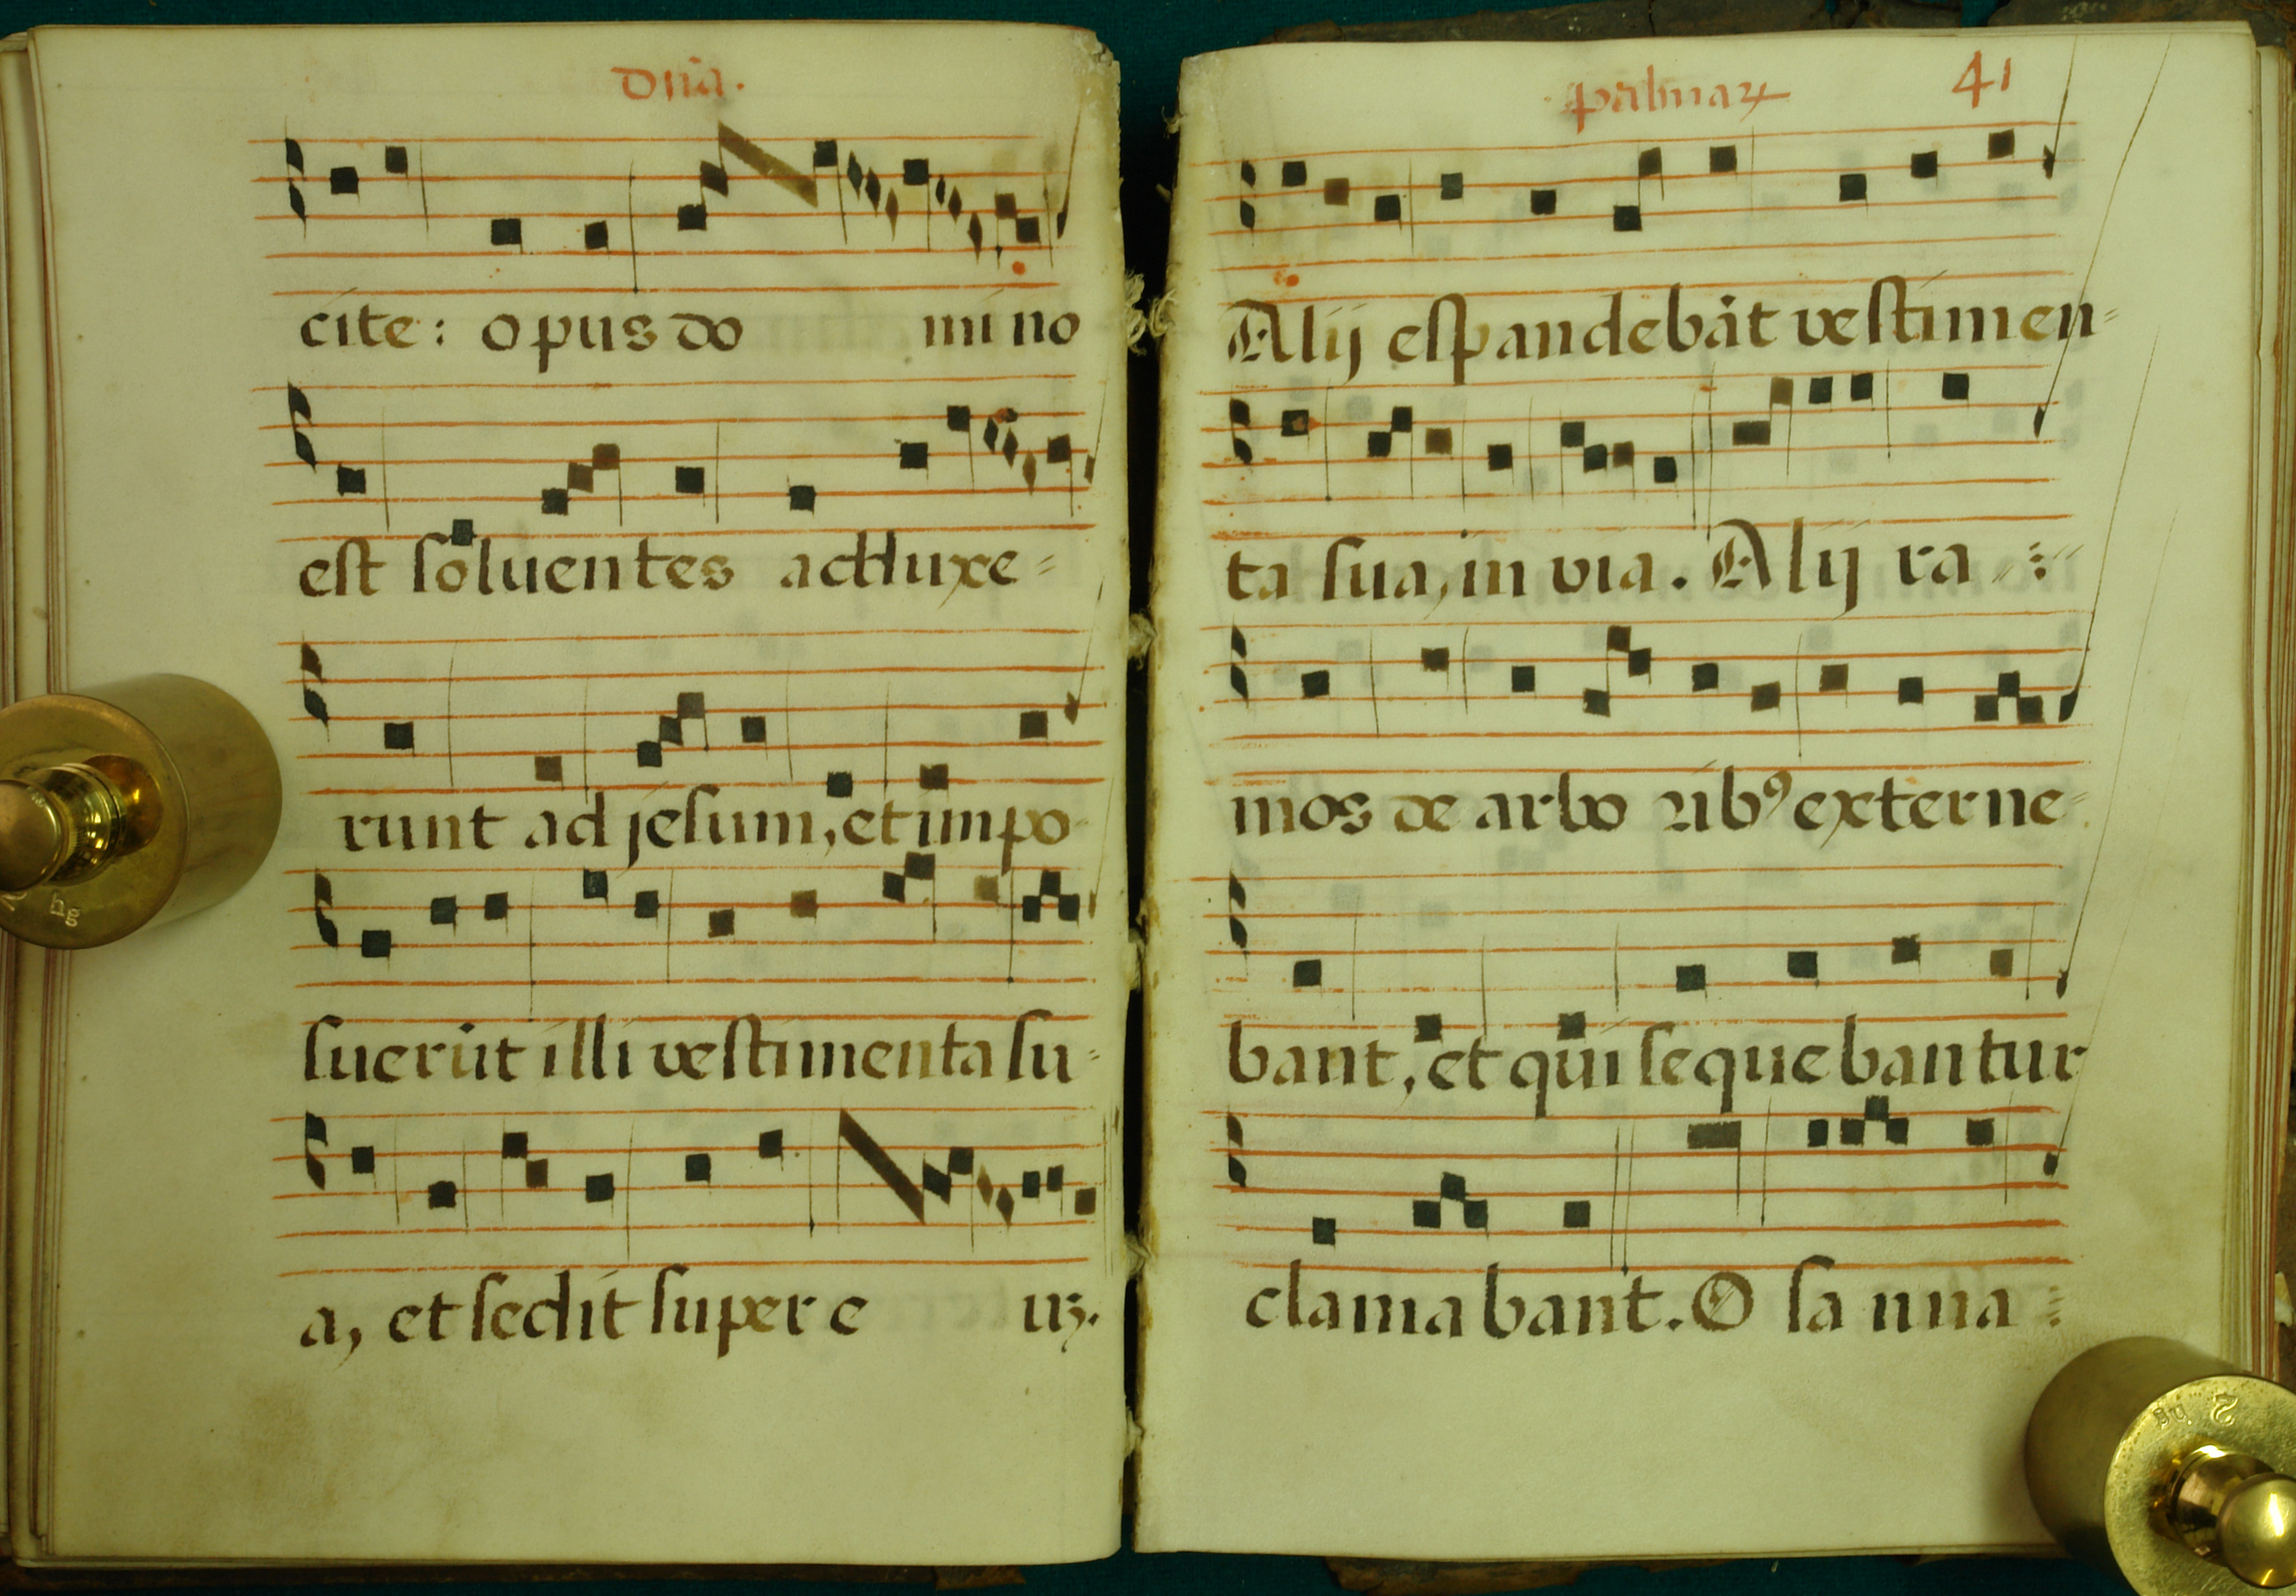 Dnã.
cite: opus do mi no
est soluentes adduxe=
runt ad jesum, et impo-
suerũt illi vestimenta su=
a, et sedit super e uʒ.
palmaꝝ 41
Alij espandebãt vestimen=
ta sua, in via. Alij ra
mos de arbo ribꝰ externe=
bant, et qui sequebantur
clamabant. O sa nna
hg
2 hg